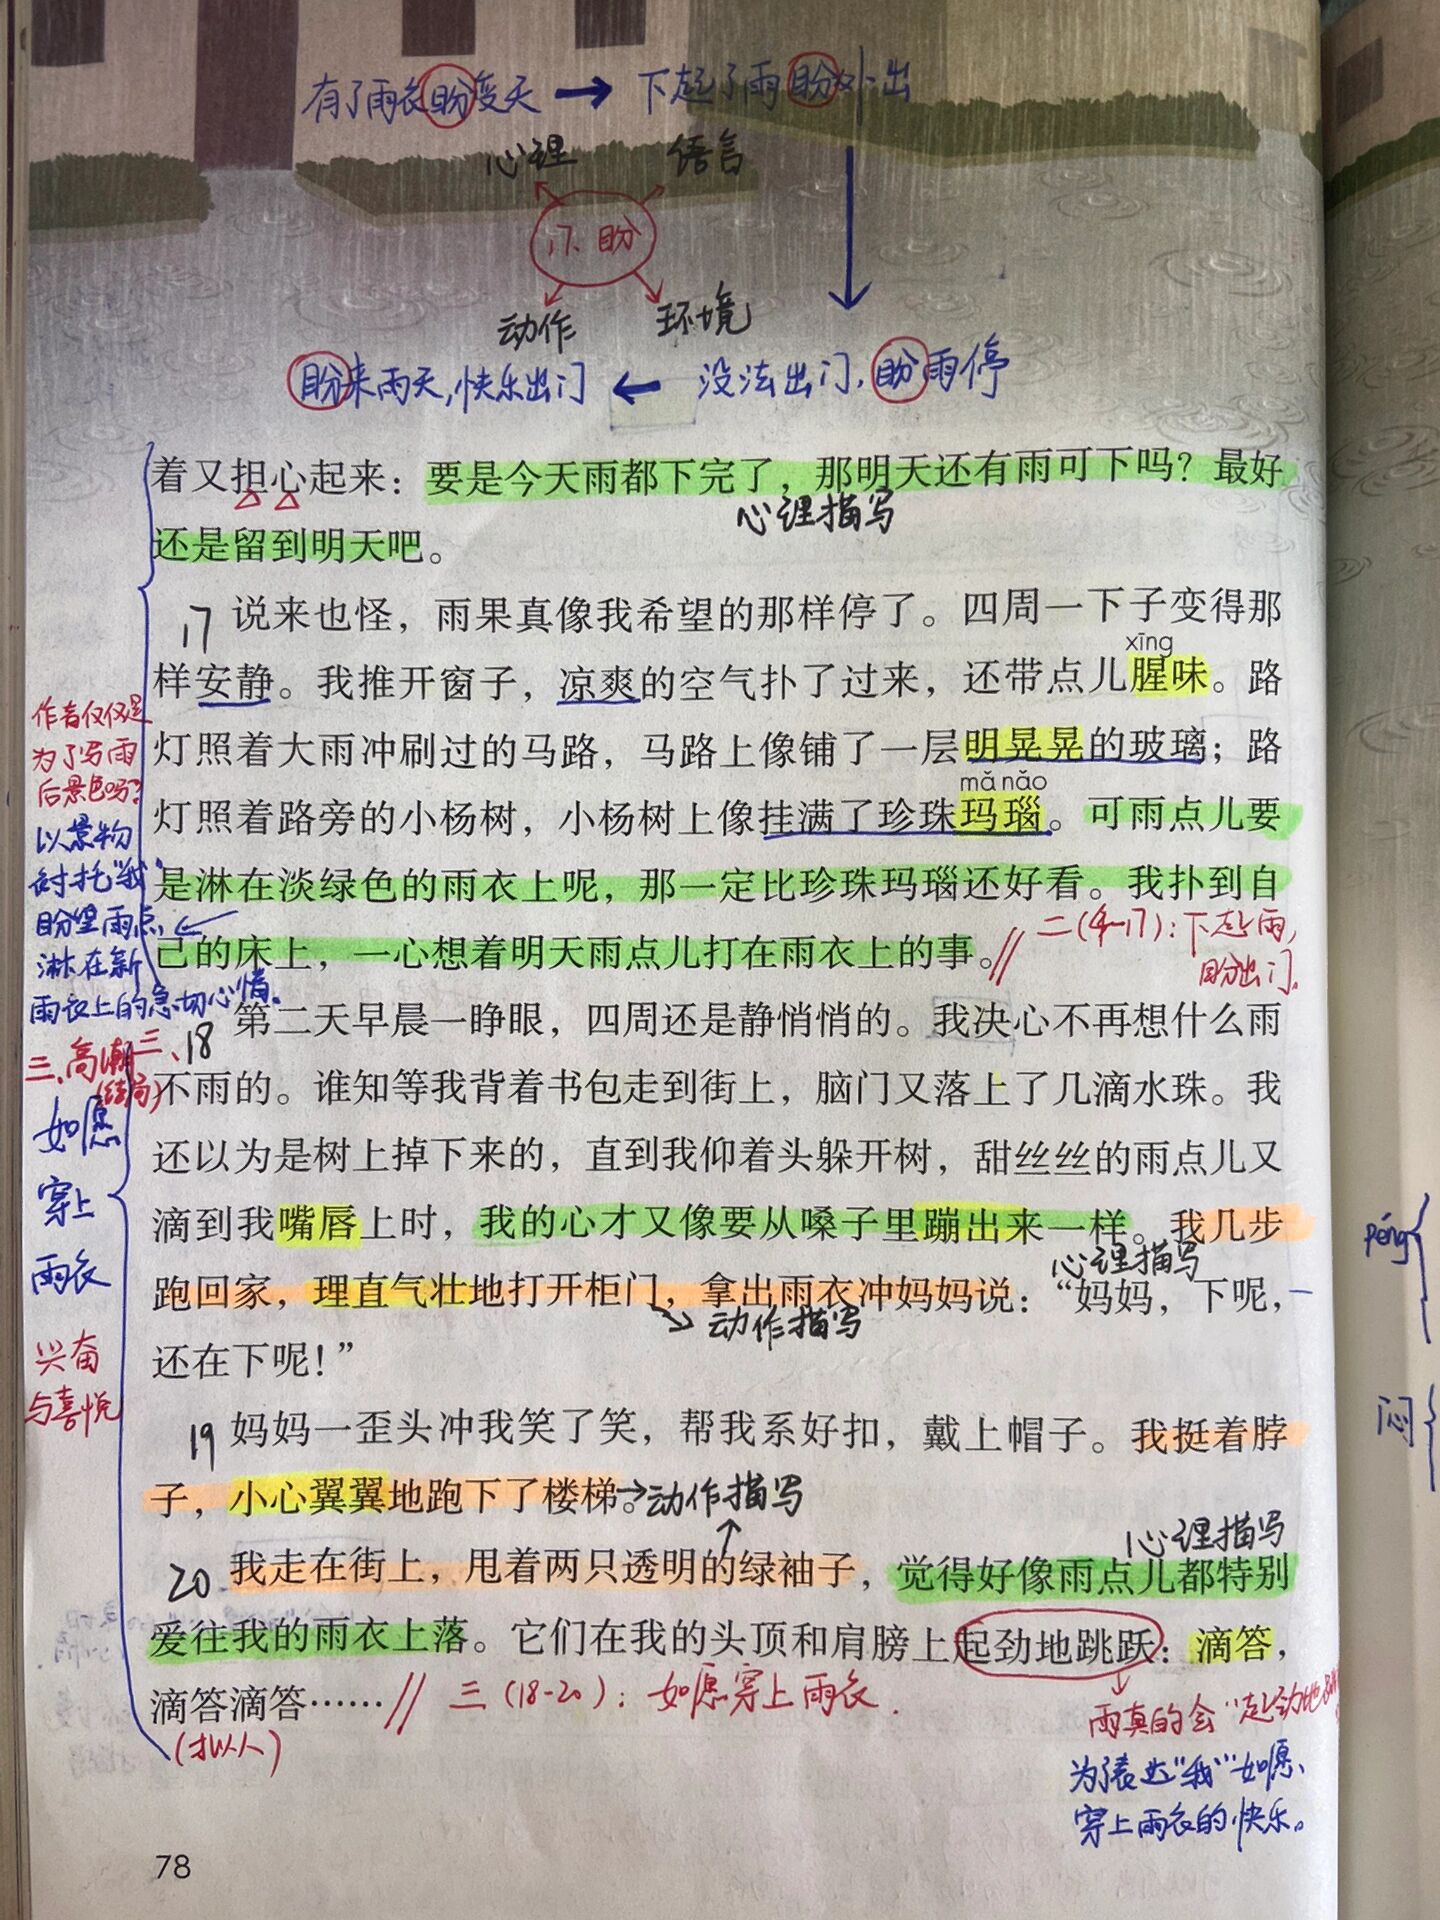 有了雨衣盼变天 → 下起了雨盼外出
心理 语言
17、盼
动作 环境
盼来雨天,快乐出门 ← 没法出门,盼雨停
着又担心起来：要是今天雨都下完了，那明天还有雨可下吗？最好
心理描写
还是留到明天吧。
17 说来也怪，雨果真像我希望的那样停了。四周一下子变得那
xīng
样安静。我推开窗子，凉爽的空气扑了过来，还带点儿腥味。路
灯照着大雨冲刷过的马路，马路上像铺了一层明晃晃的玻璃；路
mǎ nǎo
灯照着路旁的小杨树，小杨树上像挂满了珍珠玛瑙。可雨点儿要
是淋在淡绿色的雨衣上呢，那一定比珍珠玛瑙还好看。我扑到自
己的床上，一心想着明天雨点儿打在雨衣上的事。
二(4-17)：下起雨,
盼出门。
作者仅仅是
为了写雨
后景色吗?
以景物
衬托"我"
盼望雨点
淋在新
雨衣上的急切心情。
三、18 第二天早晨一睁眼，四周还是静悄悄的。我决心不再想什么雨
不雨的。谁知等我背着书包走到街上，脑门又落上了几滴水珠。我
还以为是树上掉下来的，直到我仰着头躲开树，甜丝丝的雨点儿又
滴到我嘴唇上时，我的心才又像要从嗓子里蹦出来一样。我几步
心理描写
跑回家，理直气壮地打开柜门，拿出雨衣冲妈妈说：“妈妈，下呢，
动作描写
还在下呢！”
三、高潮
(结局)
如愿
穿上
雨衣
兴奋
与喜悦
19 妈妈一歪头冲我笑了笑，帮我系好扣，戴上帽子。我挺着脖
子，小心翼翼地跑下了楼梯。→动作描写
心理描写
20 我走在街上，甩着两只透明的绿袖子，觉得好像雨点儿都特别
爱往我的雨衣上落。它们在我的头顶和肩膀上起劲地跳跃：滴答，
滴答滴答……
三(18-20)：如愿穿上雨衣.
(拟人)
雨真的会"起劲地
为了表达"我"如愿、
穿上雨衣的快乐。
péng
闷
78